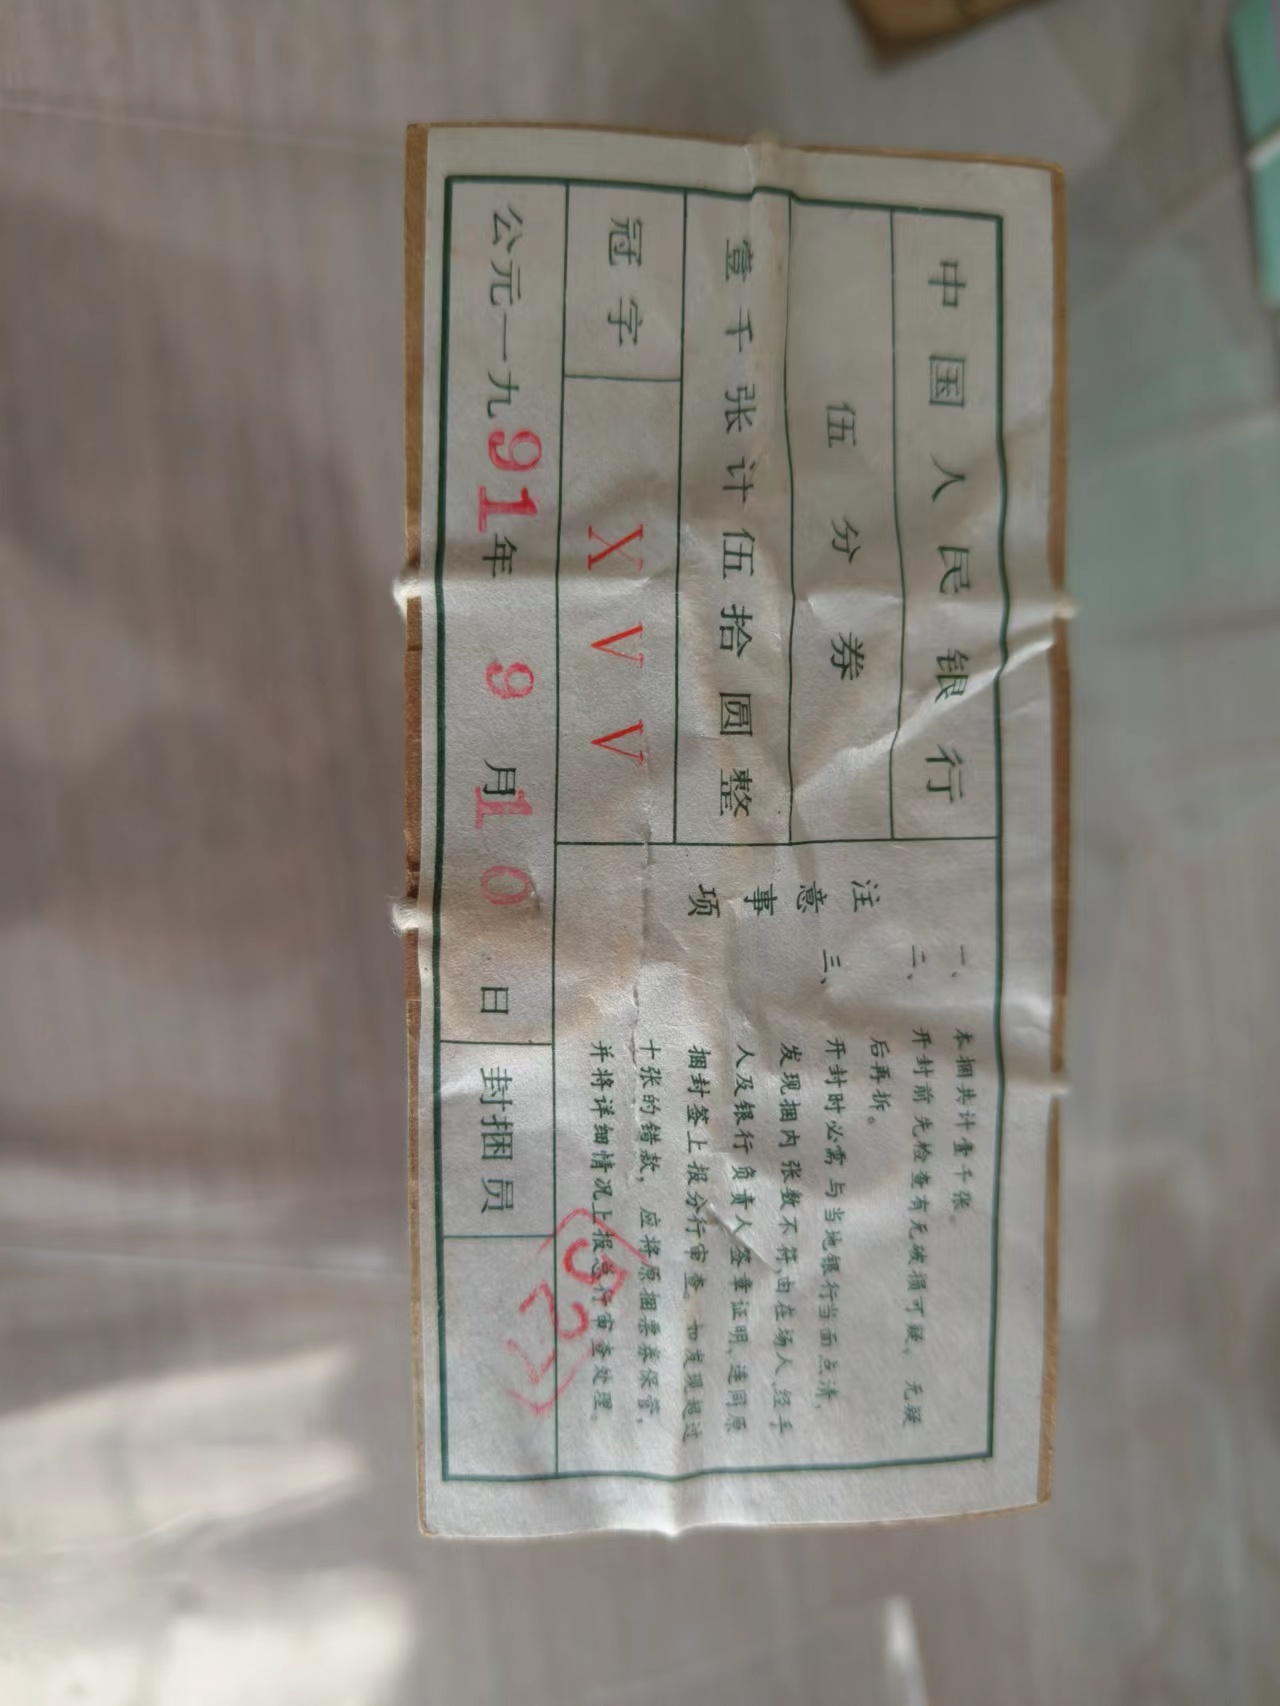 中国人民银行
伍分券
壹千张计伍拾圆整
冠字 X V V
注意事项
一、本捆共计壹千张。
二、开封前先检查有无破损可疑，无疑
后再拆。
三、开封时必需与当地银行当面点清，
发现捆内张数不符，由在场人、经手
人及银行负责人签章证明，连同原
捆封签上报分行审查。如发现超过
十张的错款，应将原捆票券保管，
并将详细情况上报总行审查处理。
公元一九91年 9 月10 日 封捆员